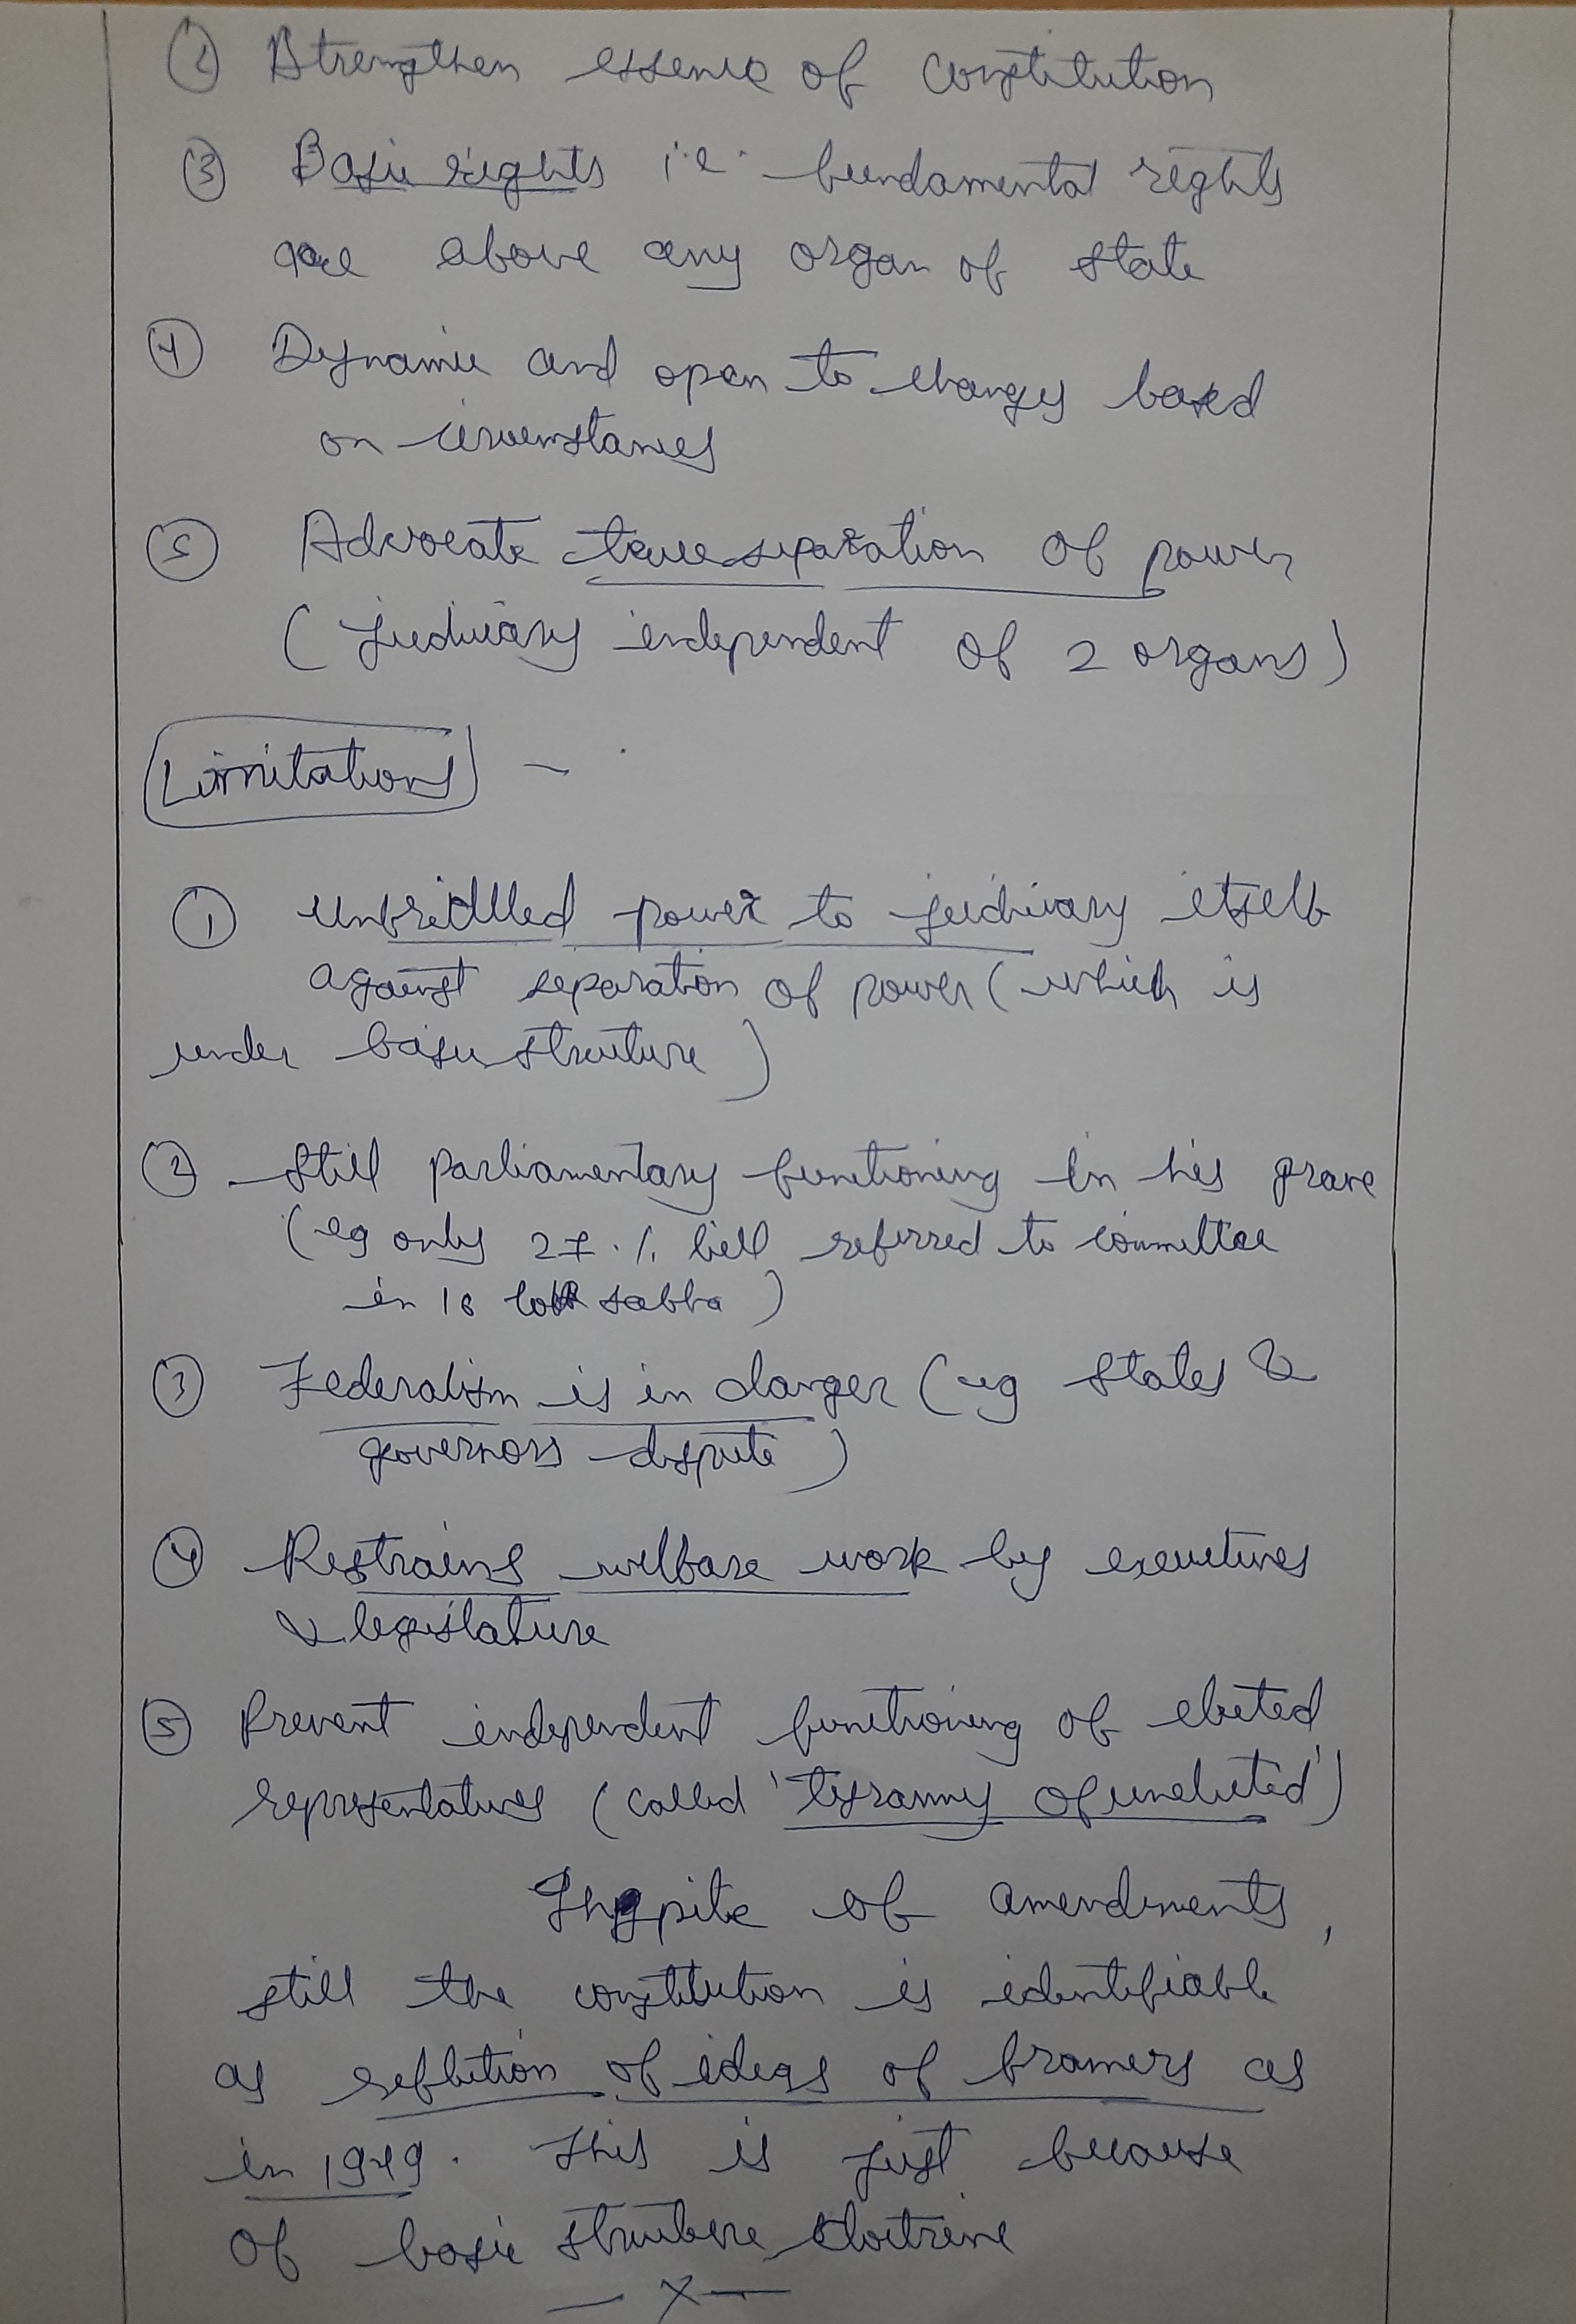 ② Strengthen essence of constitution
③ Basic rights i.e. fundamental rights
are above any organ of state
④ Dynamic and open to changes based
on circumstances
⑤ Advocate true separation of power
(judiciary independent of 2 organs)
Limitations -
① Unbridled power to judiciary itself
against separation of power (which is
under basic structure)
② Still parliamentary functioning in his grave
(eg only 27 % bill referred to committee
in 16 lok sabha)
③ Federalism is in danger (eg states &
governors dispute)
④ Restrains welfare work by executives
& legislature
⑤ Prevent independent functioning of elected
representatives (called 'tyranny of unelected')
In spite of amendments,
still the constitution is identifiable
as reflection of ideas of framers as
in 1949. This is just because
of basic structure doctrine
— X —